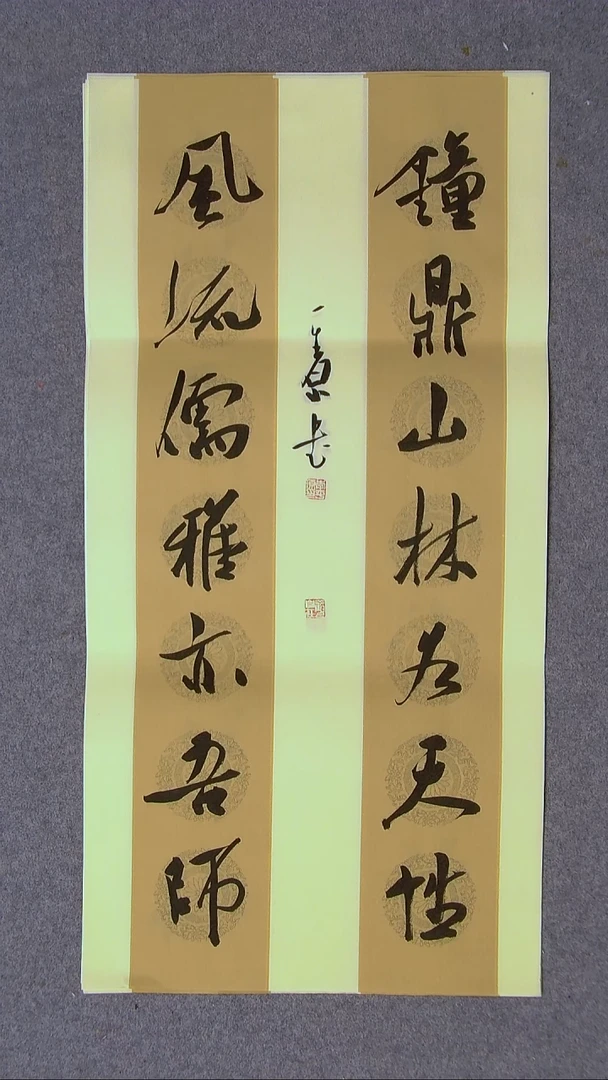 鐘鼎山林各天性
風流儒雅亦吾師